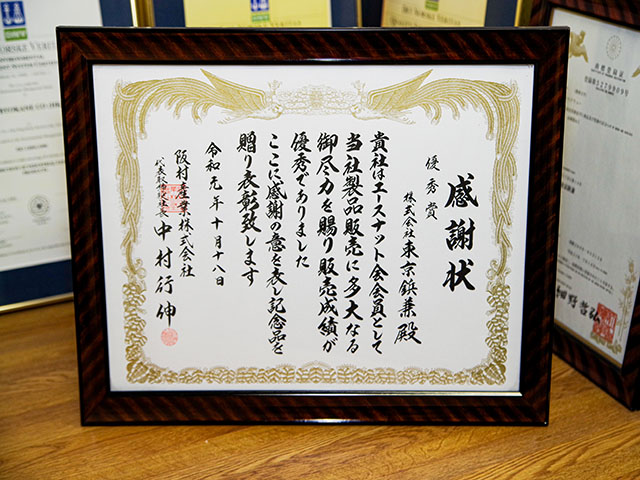 感謝状
優秀賞
株式会社東京鋲兼殿
貴社はエースナット会会員として
当社製品販売に多大なる
御尽力を賜り販売成績が
優秀でありました
ここに感謝の意を表し記念品を
贈り表彰致します
令和元年十月十八日
阪村産業株式会社
代表取締役社長 中村行伸
DNV
DNV